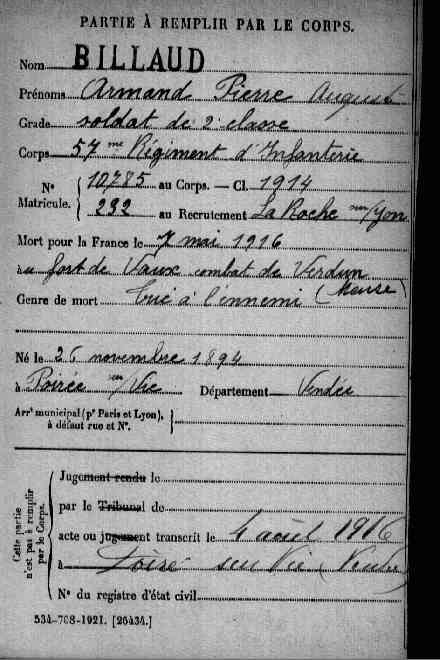 PARTIE À REMPLIR PAR LE CORPS.
Nom BILLAUD
Prénoms Armand Pierre Auguste
Grade soldat de 2e classe
Corps 57me Régiment d'Infanterie
N° Matricule. { 10785 au Corps. — Cl. 1914
232 au Recrutement La Roche sur/Yon
Mort pour la France le 7 mai 1916
au fort de Vaux combat de Verdun
(Meuse)
Genre de mort Tué à l'ennemi
Né le 26 novembre 1894
à Poirée sur/Vie Département Vendée
Arrt municipal (pr Paris et Lyon), à défaut rue et N°.
Cette partie n'est pas à remplir par le Corps.
Jugement rendu le
par le Tribunal de
acte ou jugement transcrit le 4 août 1916
à Poiré sur Vie (Vendée)
N° du registre d'état civil
534-708-1921. [26434.]